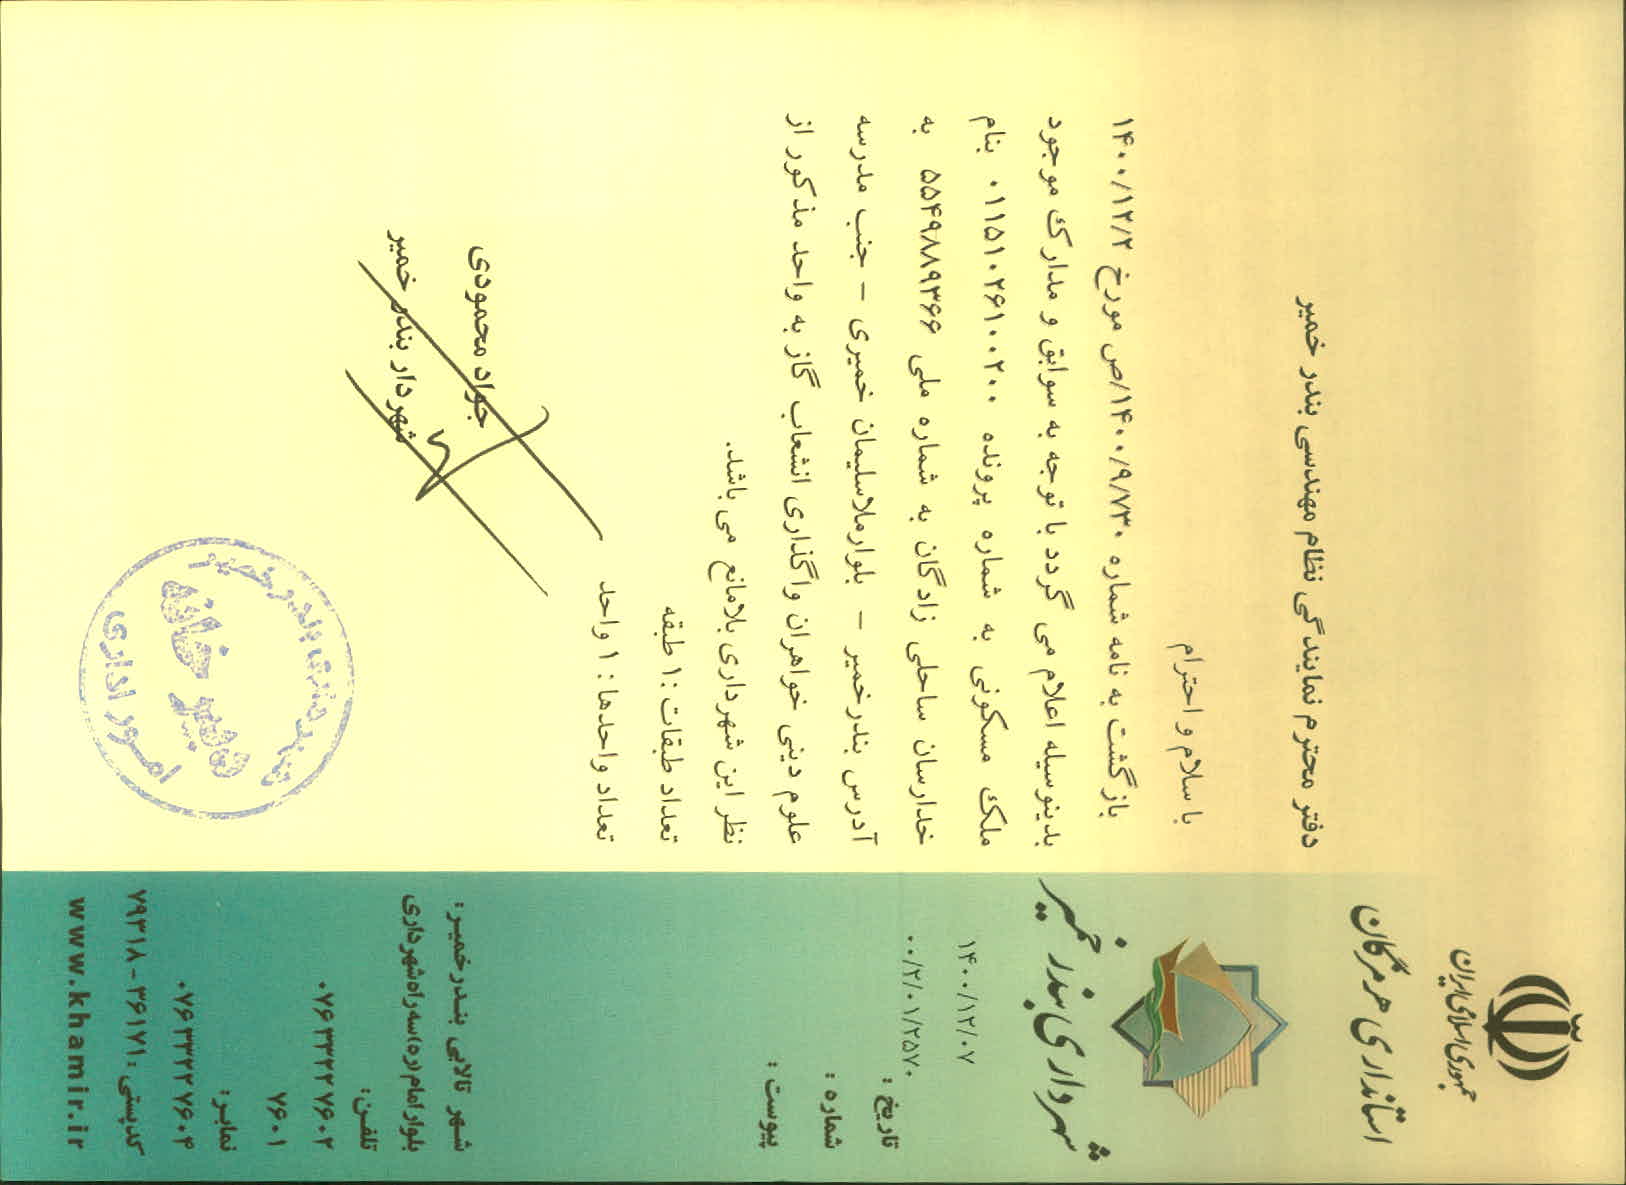 جمهوری اسلامی ایران
استانداری هرمزگان
شهرداری بندر خمیر
۱۴۰۰/۱۲/۰۷
۰۰/۲/۰۱/۲۵۷۰
تاریخ :
شماره :
پیوست :
دفتر محترم نمایندگی نظام مهندسی بندر خمیر
با سلام و احترام
بازگشت به نامه شماره ۱۴۰۰/۹/۷۳۰/ص مورخ ۱۴۰۰/۱۲/۲
بدینوسیله اعلام می گردد با توجه به سوابق و مدارک موجود
ملک مسکونی به شماره پرونده ۰۱۱۵۱۰۲۶۱۰۰۲۰۰ بنام
خدارسان ساحلی زادگان به شماره ملی ۵۵۴۹۸۸۹۳۶۶ به
آدرس بندرخمیر – بلوارملاسلیمان خمیری – جنب مدرسه
علوم دینی خواهران واگذاری انشعاب گاز به واحد مذکور از
نظر این شهرداری بلامانع می باشد.
تعداد طبقات :۱ طبقه
تعداد واحدها : ۱ واحد
جواد محمودی
شهردار بندر خمیر
شهرداری بندر خمیر
دبیرخانه
امور اداری
شهر تالابی بندرخمیر:
بلوار امام (ره) سه راه شهرداری
تلفن:
۰۷۶۳۳۲۲۷۶۰۲
۷۶۰۱
نمابر:
۰۷۶۳۳۲۲۷۶۰۴
کدپستی : ۳۶۱۷۱ - ۷۹۳۱۸
www.khamir.ir